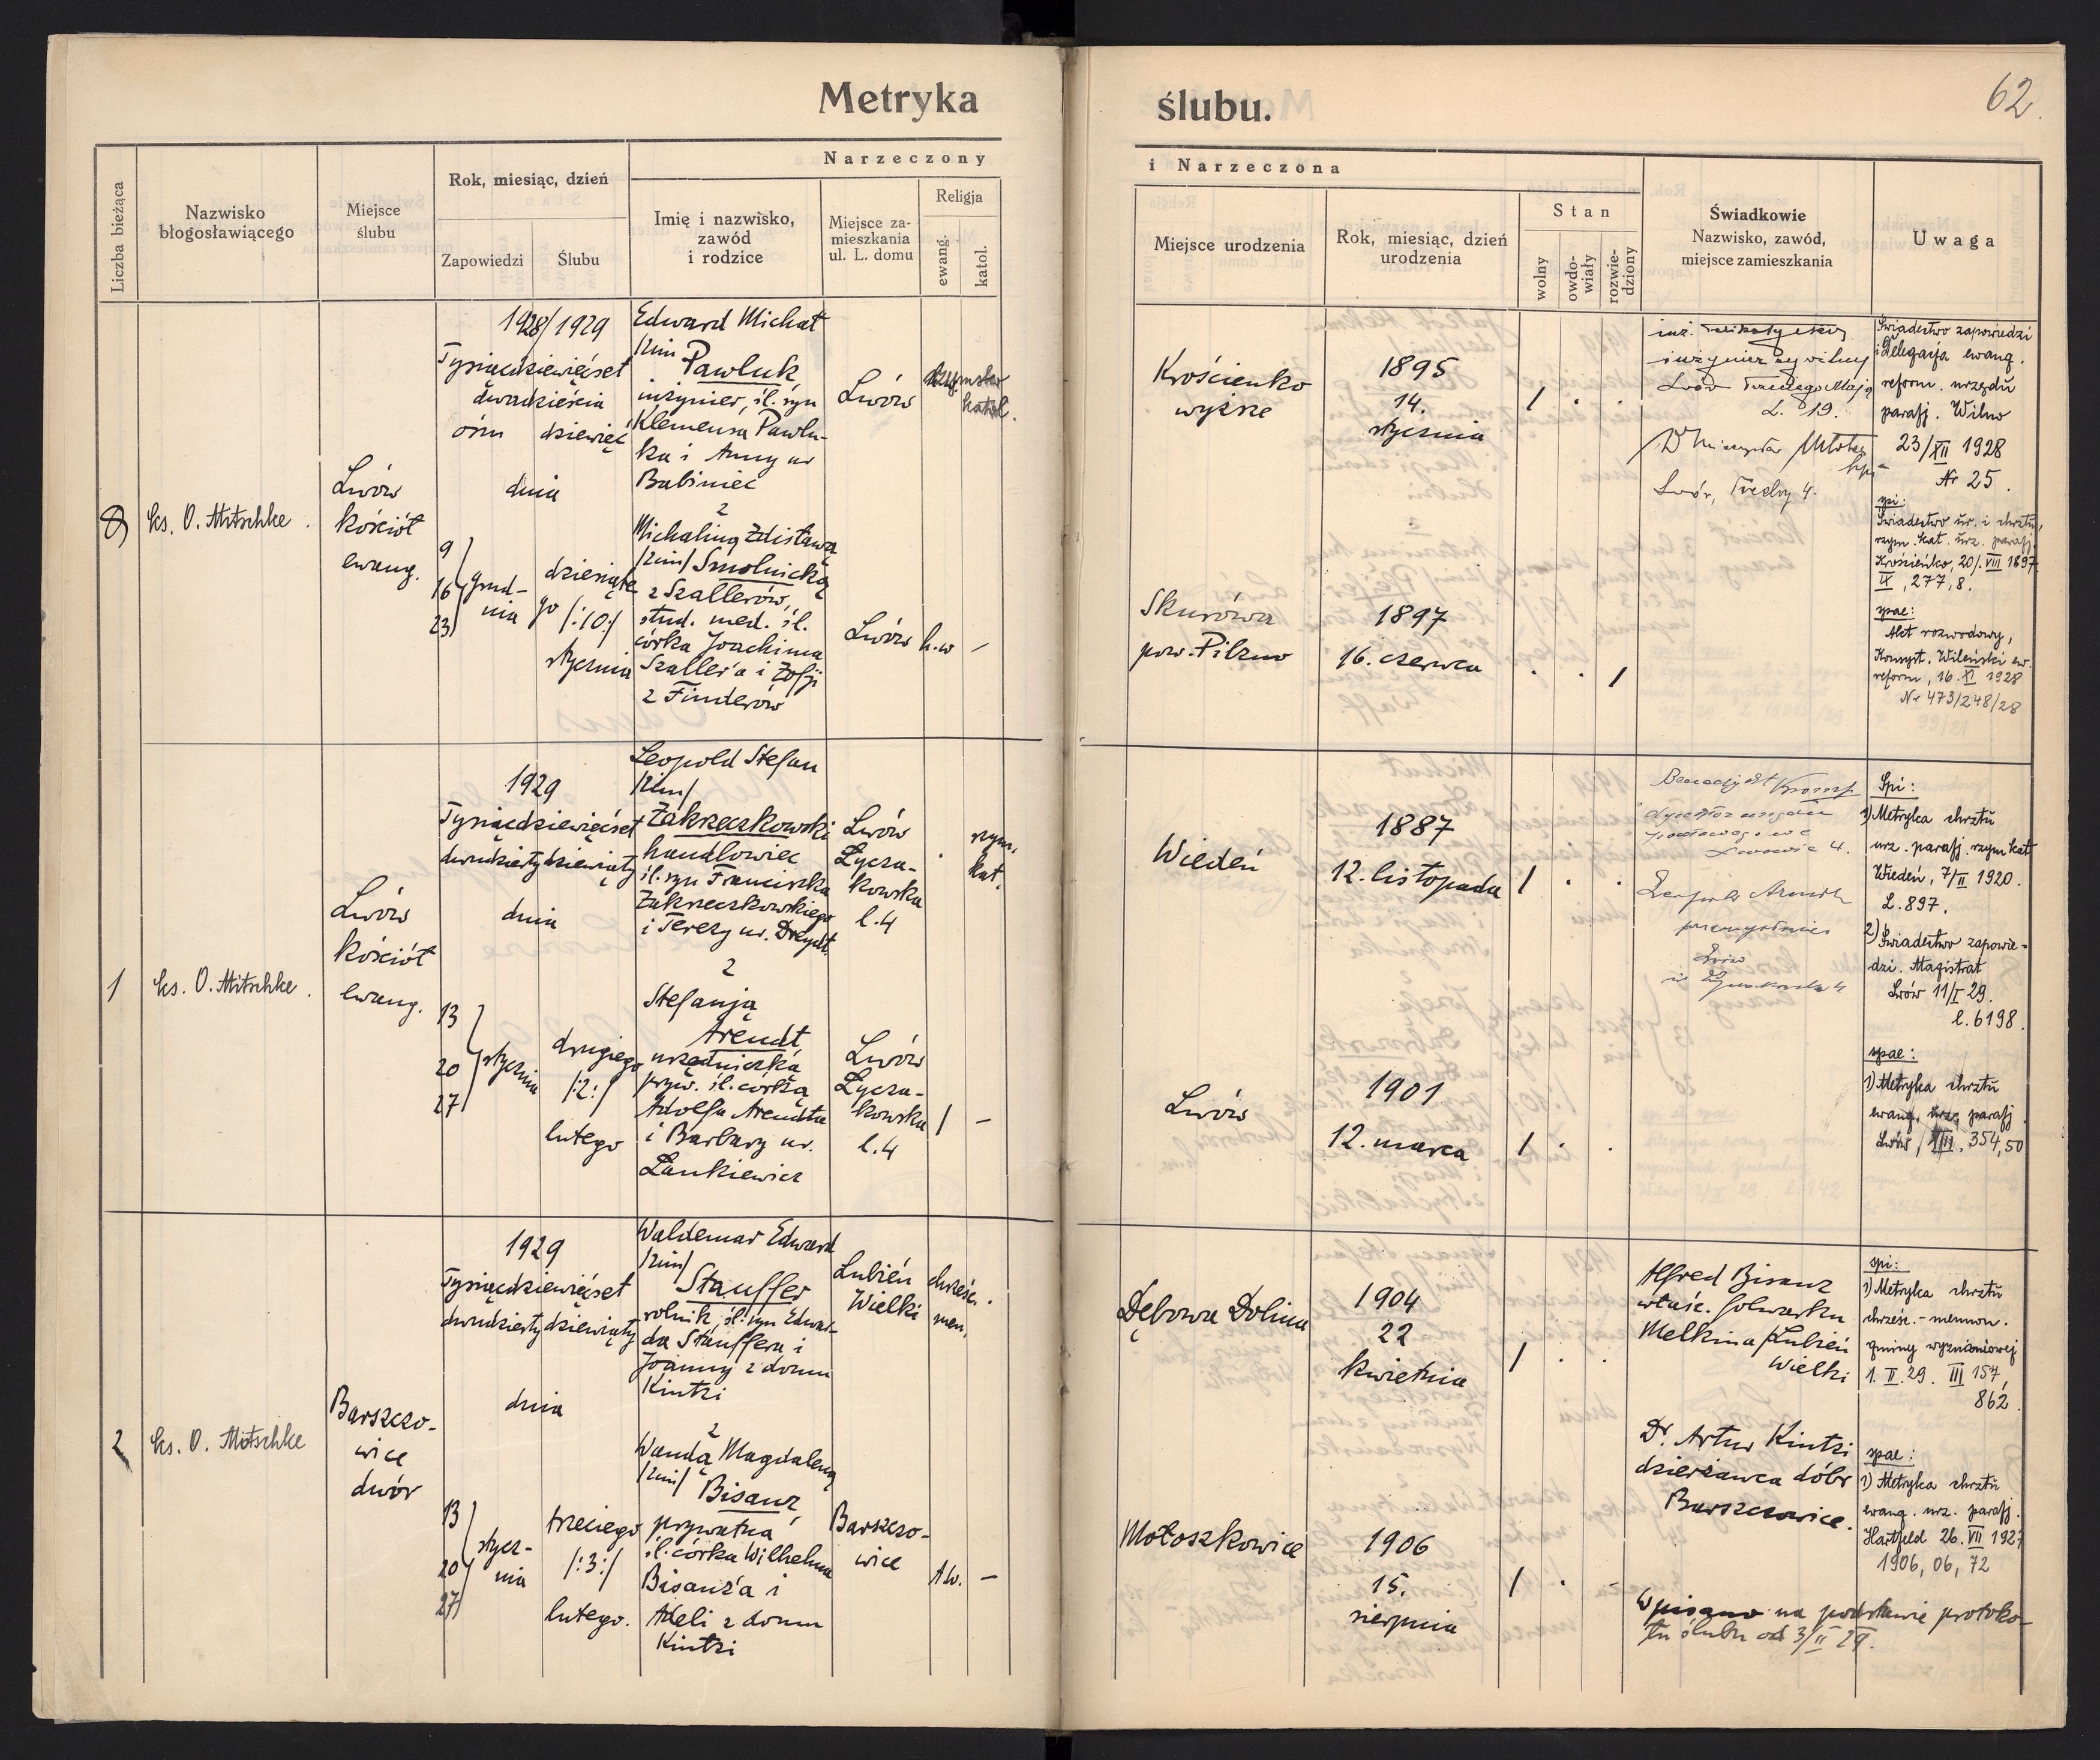 Metryka ślubu.
62
Liczba bieżąca
Nazwisko
błogosławiącego
Miejsce
ślubu
Rok, miesiąc, dzień
Zapowiedzi
Ślubu
Narzeczony
Imię i nazwisko,
zawód
i rodzice
Miejsce za-
mieszkania
ul. L. domu
Religja
ewang.
katol.
i Narzeczona
Miejsce urodzenia
Rok, miesiąc, dzień
urodzenia
Stan
wolny
owdo-
wiały
rozwie-
dziony
Świadkowie
Nazwisko, zawód,
miejsce zamieszkania
Uwaga
8
ks. O. Mitschke.
Lwów
kościół
ewang.
1928/1929
Tysiącdziewięćset
dwudziestu
ósm dziewięć
dnia
9
16
23
grud-
nia
dziesiąte
go /:10:/
stycznia
Edward Michał
/2im/
Pawluk
inżynier, śl. syn
Klemensa Pawlu-
ka i Anny ur
Babiniec
z
Michaliną Zdisławą
/2im/ Smolnicką
z Szallerów,
stud. med. śl.
córka Joachima
Szaller'a i Zofji
z Finderów
Lwów
Lwów
katol.
h.w -
Krościenko
wyżne
1895
14.
stycznia
Skurówa
pow. Pilzno
1897
16. czerwca
inż.
inżynier cywilny
Lwów Trzeciego Maja
L. 19.
Lwów, 4.
Świadectwo zapowiedzi
i Delegacja ewang.
reform. urzędu
parafj. Wilno
23/XII 1928
№ 25.
spi:
Świadectwo ur. i chrztu,
rzym. kat. urz. parafj.
Krościenko, 20/VIII 1897.
IX, 277, 8.
spae:
Akt rozwodowy,
Konsyst. Wileński ew.
reform, 16. XI 1928
Nr 473/248/28
1
ks. O. Mitschke.
Lwów
kościół
ewang.
1929
Tysiącdziewięćset
dwudziestydziewiąty
dnia
13
20
27
stycznia
drugiego
/:2:/
lutego
Leopold Stefan
/2im/
Zakrzeszkowski
handlowiec
śl. syn Franciszka
Zakrzeszkowskiego
i Teresy ur.
z
Stefanją
Arendt
urzędniczką
pryw. śl. córką
Adolfa Arendta
i Barbary ur.
Łankiewicz
Lwów
Łycza-
kowska
l. 4
Lwów
Łycza-
kowska
l. 4
rzym.
kat.
Wiedeń
1887
12. listopada
Lwów
1901
12. marca
Lwowie 4.
Arendt
przemysłowiec
Lwów
Spi:
1) Metryka chrztu
urz. parafj. rzym kat
Wiedeń, 7/II 1920.
L. 897.
2) Świadectwo zapowie-
dzi. Magistrat
Lwów 11/I 29.
l. 6198.
spae:
1) Metryka chrztu
ewang. urz. parafj.
Lwów, XIII, 354, 50
2
ks. O. Mitschke
Barszczo-
wice
dwór
1929
Tysiącdziewięćset
dwudziestydziewiąty
dnia
13
20
27
stycz-
nia
trzeciego
/:3:/
lutego.
Waldemar Edward
/2im/
Stauffer
rolnik, śl. syn Edwar-
da Stauffera i
Joanny z domu
Kintzi
z
Wandą Magdaleną
/2im/
Bisanz,
prywatna
śl. córka Wilhelma
Bisanz'a i
Adeli z domu
Kintzi
Lubień
Wielki
Barszczo-
wice
chrześc.
men.
A.w. -
Dębowa Dolina
1904
22
kwietnia
Mołoszkowice
1906
15.
sierpnia
Alfred Bisanz
właśc. folwarku
Melkina/Lubień
Wielki
Dr. Artur Kintzi
dzierżawca dóbr
Barszczowice.
Wpisano na podstawie protoko-
łu ślubu od 3/II 29.
spi:
1) Metryka chrztu
chrześc.-mennon.
gminy wyznaniowej
1. II. 29. III 157,
862.
spae:
1) Metryka chrztu
ewang. urz. parafj.
Hartfeld 26. VII 1927
1906, 06, 72